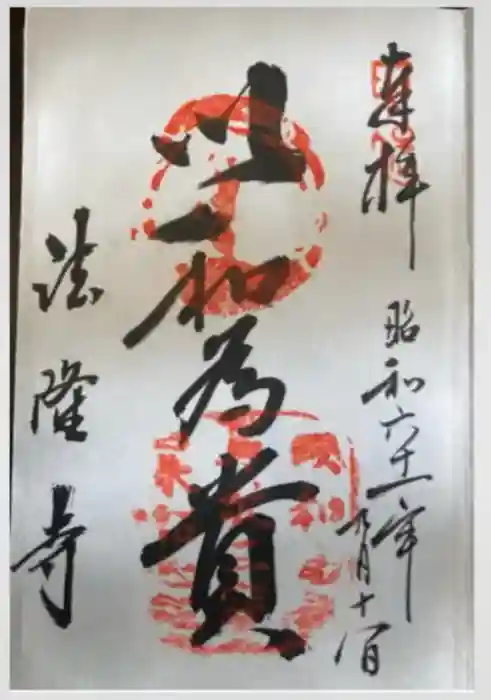 奉拝
昭和六十一年
九月十八日
以和為貴
法隆寺